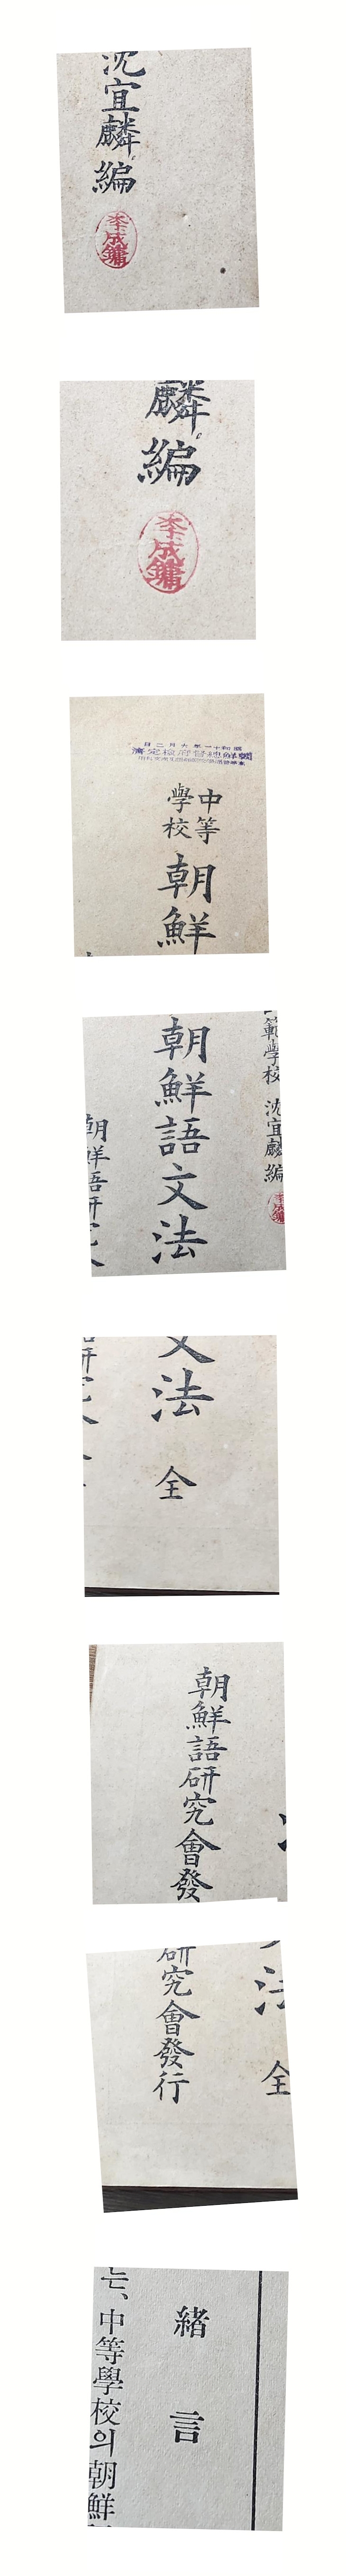 沈宜麟編
李成鏞
麟編
李成鏞
昭和十一年九月二日
朝鮮總督府檢定濟
中等
學校
朝鮮
範學校 沈宜麟編
朝鮮語文法
朝鮮語研
文法 全
朝鮮語研究會發
法 全
研究會發行
緒言
는、中等學校의朝鮮